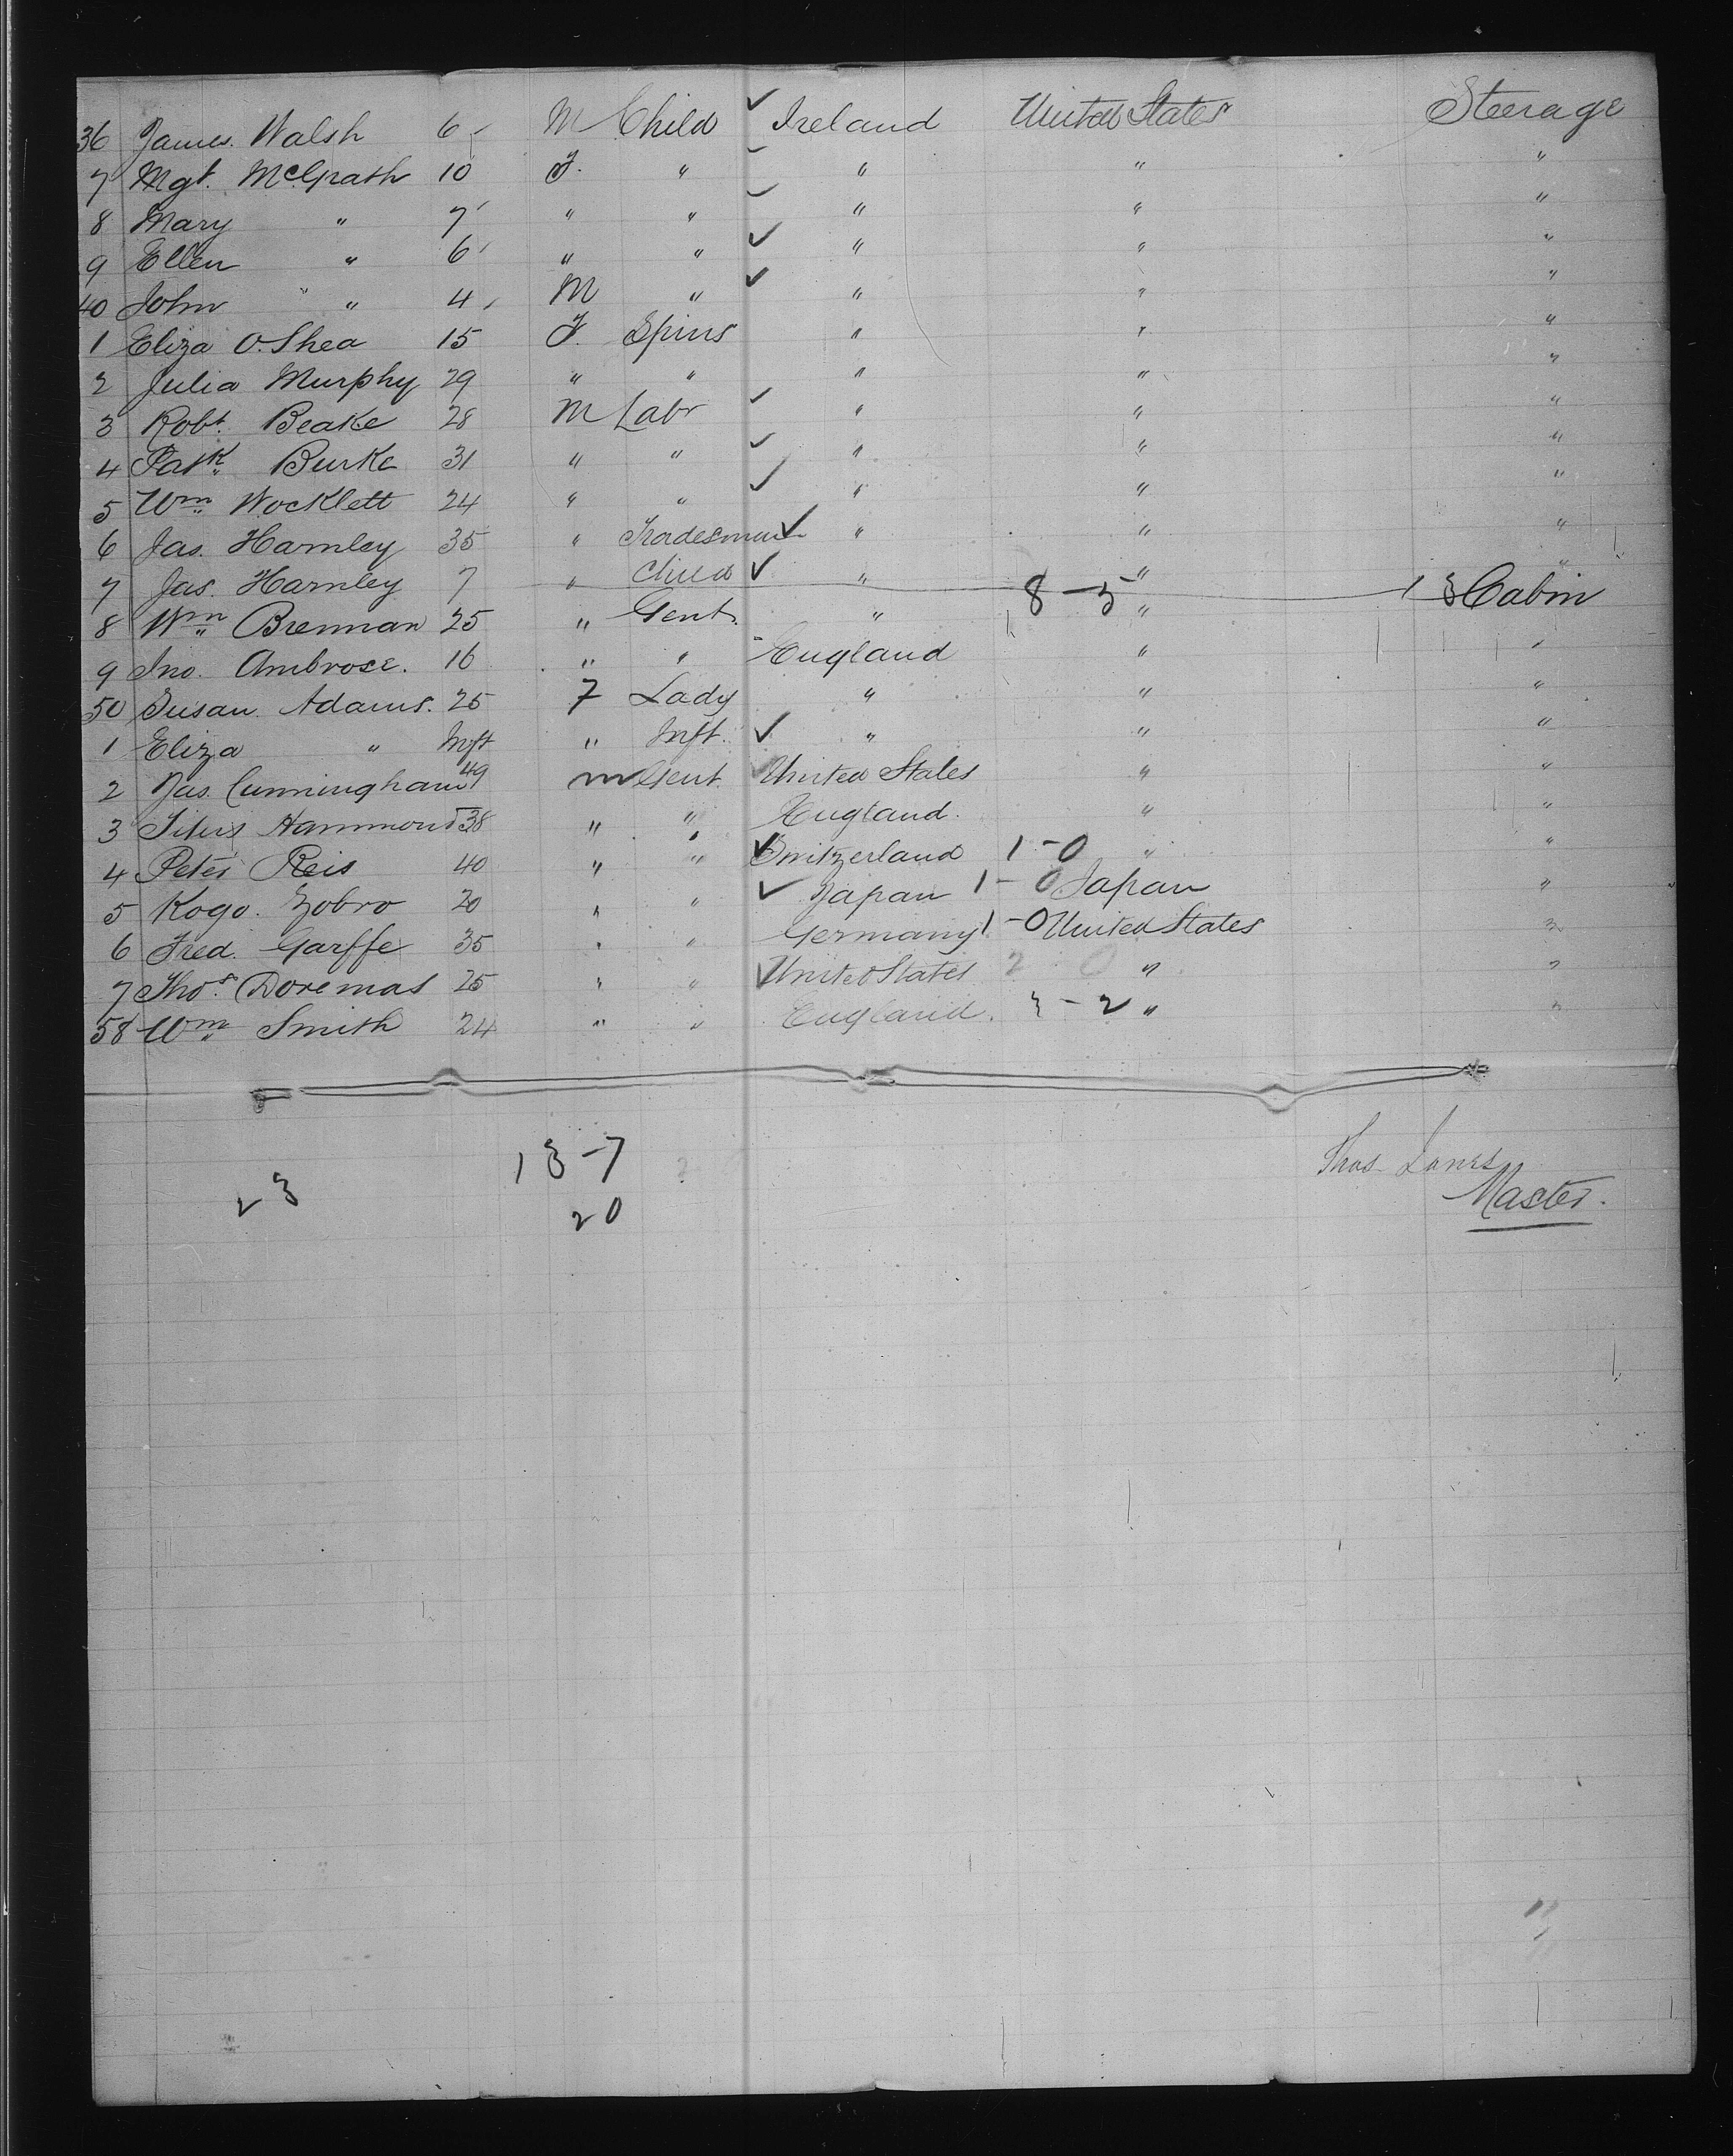 36 James Walsh 6 M Child ✓ Ireland United States Steerage
7 Mgt. McGrath 10 F. " " " "
8 Mary " 7 " " " " "
9 Ellen " 6 " " ✓ " " "
40 John " " 4 M " ✓ " " "
1 Eliza O.Shea 15 F. Spins " " "
2 Julia Murphy 29 " " " " "
3 Robt. Beake 28 M Labr ✓ " " "
4 Patk Burke 31 " " ✓ " " "
5 Wm Wocklett 24 " " ✓ " " "
6 Jas. Hamley 35 " Tradesman ✓ " " "
7 Jas. Hamley 7 " Child ✓ " " "
8-5 13
8 Wm Brennan 25 " Gent. " " Cabin
9 Jno. Ambrose. 16 " " England " "
50 Susan Adams. 25 F Lady " " "
1 Eliza " Inft " Inft. ✓ " " "
2 Jas. Cunningham 49 m Gent. ✓ United States " "
3 Titus Hammond 38 " " England. " "
4 Peter Reis 40 " " ✓ Switzerland 1-0 " "
5 Kogo. Zobro 20 " " ✓ Japan 1-0 Japan "
6 Fred. Garffe 35 " " Germany 1-0 United States "
7 Thos. Doremas 25 " " ✓ United States 2 0 " "
58 Wm Smith 24 " " England. 3-2 " "
13-7
23
20
Thos Jones
Master.